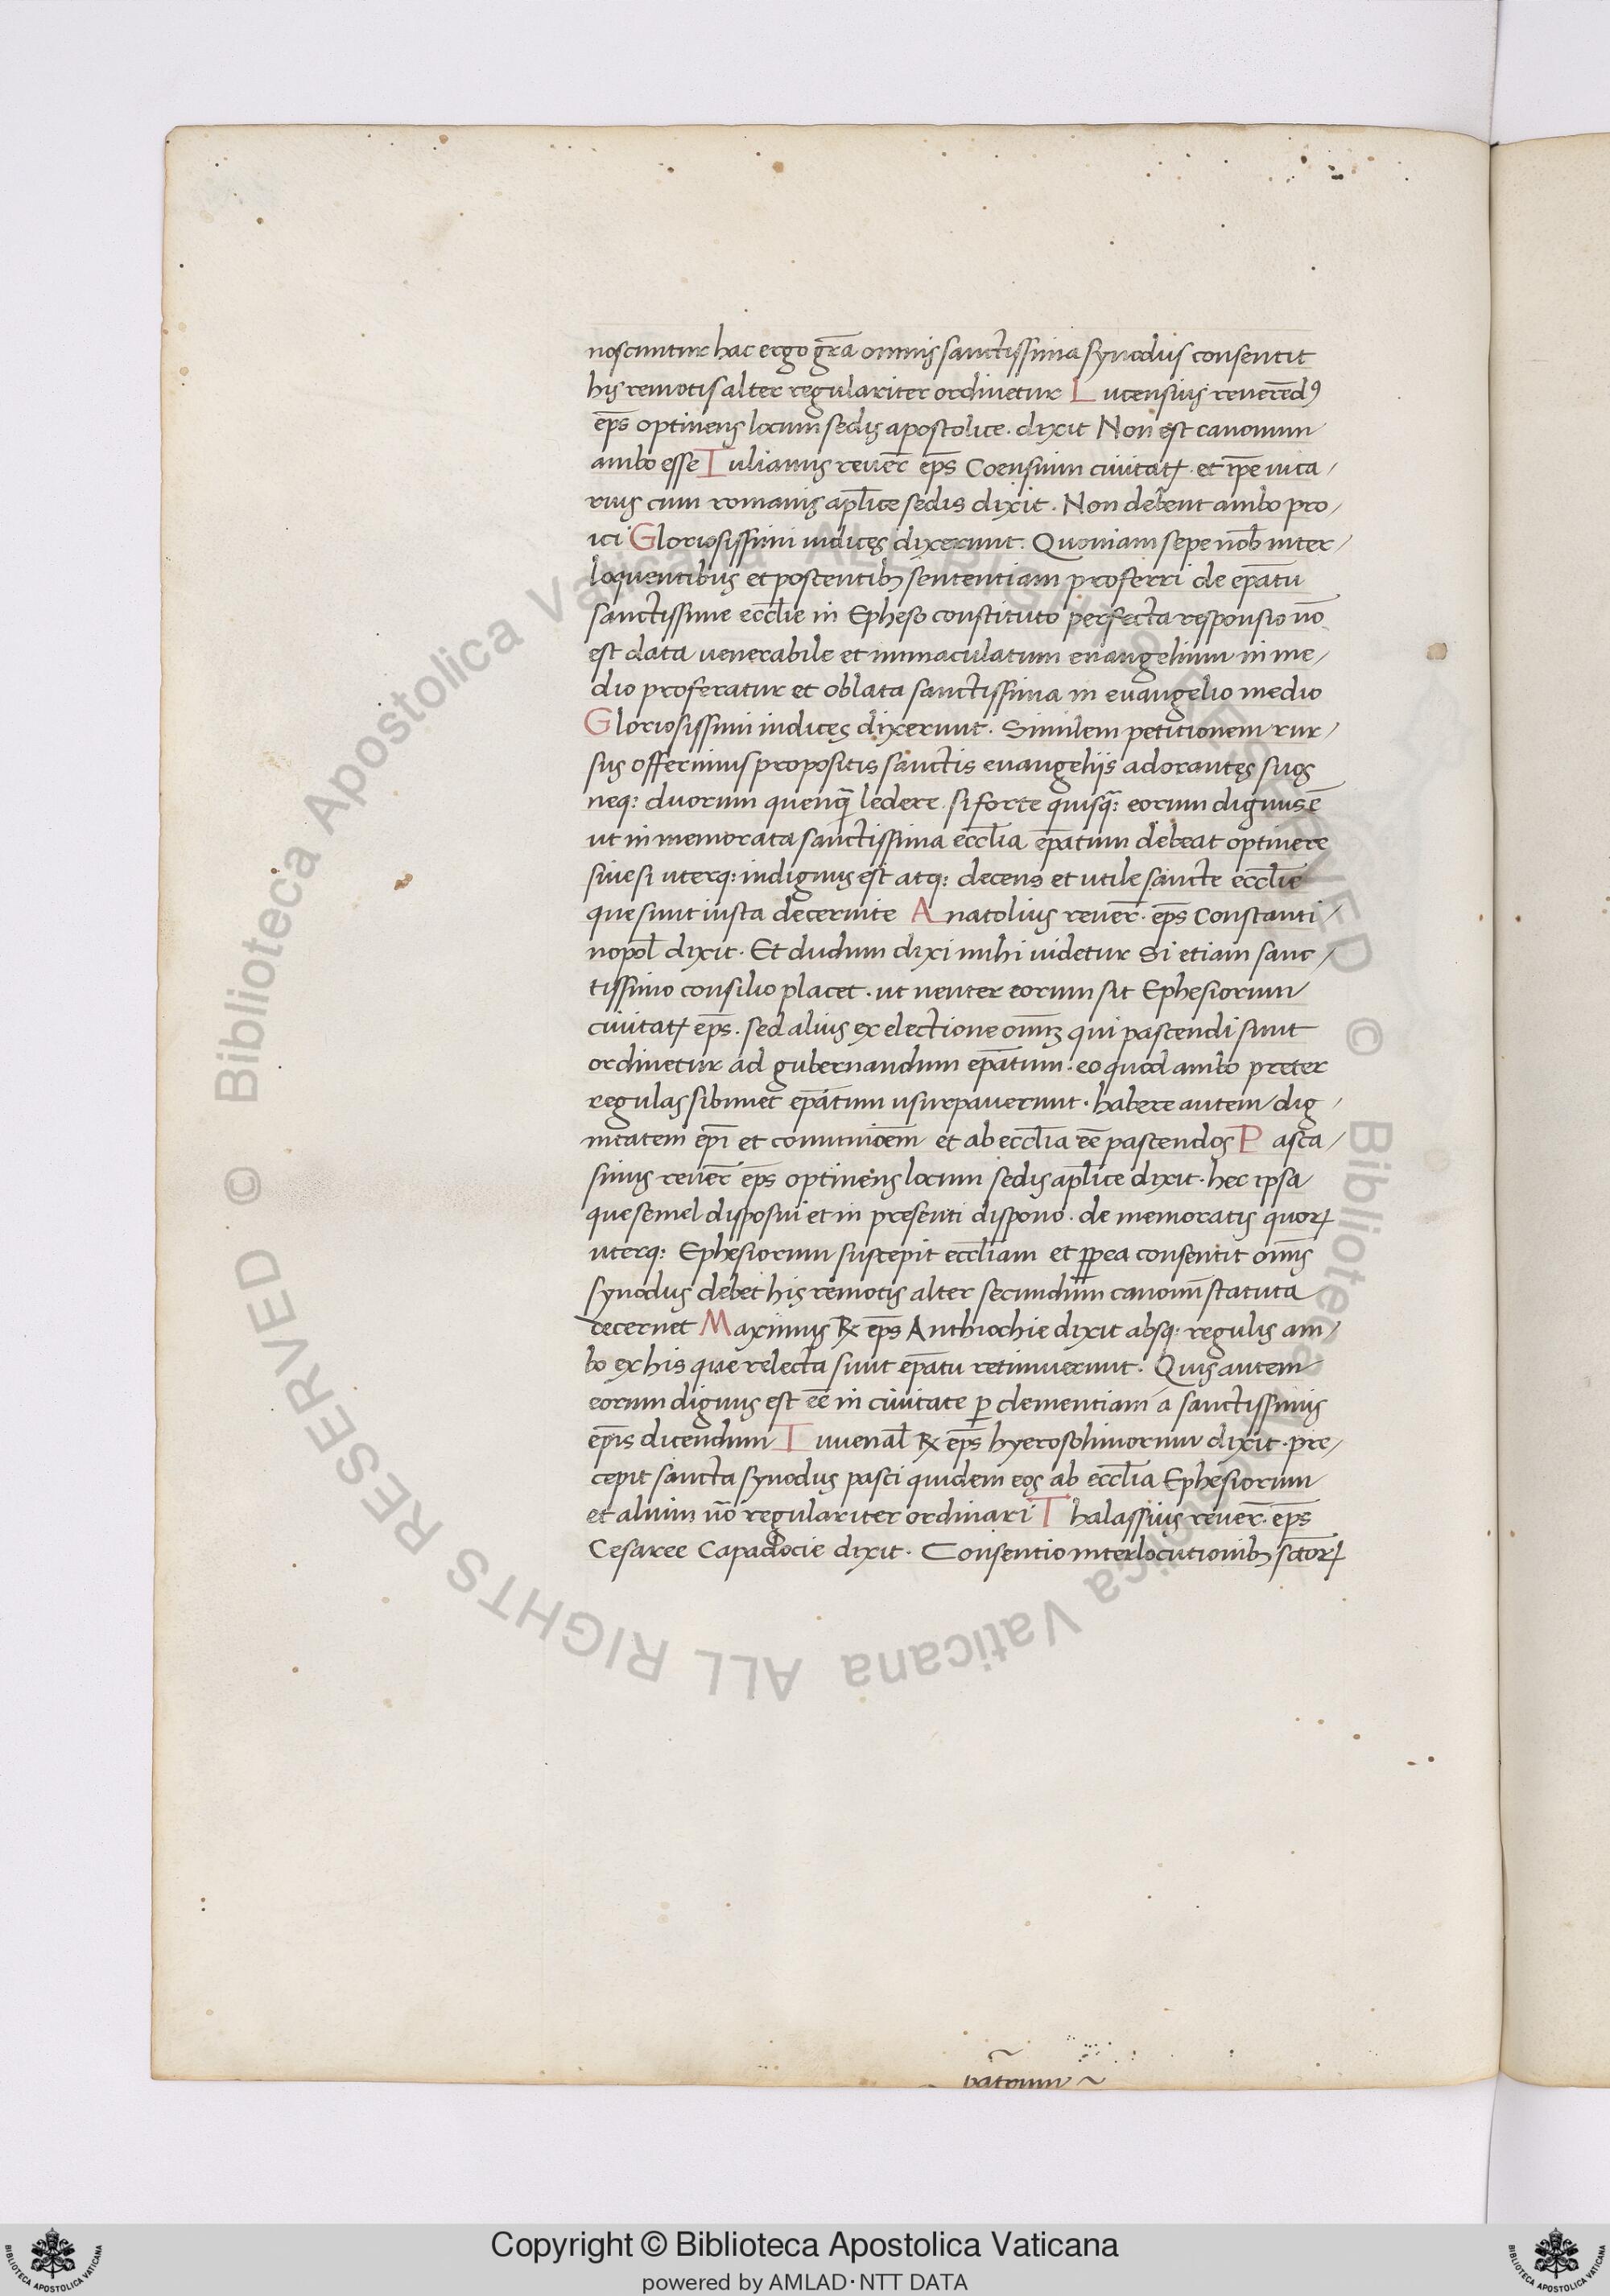 noscuntur hac ergo gr̄a omnis sanctissima synodus consentit
his remotis alter regulariter ordinetur Lucensius reuerēdꝰ
ep̄s optinens locum sedis apostolice. dixit Non est canonum
ambo esse Iulianus reuer̄ ep̄s Coensium ciuitatꝭ. et ip̄e uica/
rius cum romanis apl̄ice sedis dixit. Non debent ambo pro/
ici Gloriosissimi iudices dixerunt. Quoniam sepe nob̄ inter/
loquentibus et poscentibꝫ sententiam proferri de ep̄atu
sanctissime eccl̄ie in Epheso constituto perfecta responsio nō
est data uenerabile et immaculatum euangelium in me/
dio proferatur et oblata sanctissima in euangelio medio
Gloriosissimi iudices dixerunt. Similem petitionem rur/
sus offerimus propositis sanctis euangeliis adorantes suos
neq: duorum quenq̄ ledere. si forte quisq̄: eorum dignus ē
ut in memorata sanctissima eccl̄ia ep̄atum debeat optinere
siue si uterq: indignus est atq: decens et utile sancte eccl̄ie
que sunt iusta decernite Anatolius reuer̄. ep̄s Constanti/
nopol̄ dixit. Et dudum dixi mihi uidetur Si etiam sanc/
tissimo consilio placet. ut neuter eorum sit Ephesiorum
ciuitatꝭ ep̄s. sed alius ex electione om̄iꝫ qui pascendi sunt
ordinetur ad gubernandum ep̄atum. eo quod ambo preter
regulas sibimet ep̄atum usurpauerunt. habere autem dig/
nitatem ep̄i et comunioēm et ab eccl̄ia eē pascendos Pasca/
sinus reuer̄ ep̄s optinens locum sedis apl̄ice dixit. hec ipsa
que semel disposui et in presenti dispono. de memoratis quorꝝ
uterq: Ephesiorum suscepit eccl̄iam et ꝑpea consentit om̄is
synodus debet his remotis alter secundum canonū statuta
decernet Maximus ℞ ep̄s Anthiochie dixit absq: regulis am/
bo ex his que relecta sunt ep̄atu retinuerunt. Quis autem
eorum dignus est eē in ciuitate ꝑ clementiam a sanctissimis
ep̄is dicendum Iuuenal̄ ℞ ep̄s hyerosolimorum dixit. pre/
cepit sancta synodus pasci quidem eos ab eccl̄ia Ephesiorum
et alium nō regulariter ordinari Thalassius reuer̄. ep̄s
Cesaree Capadocie dixit. Consentio interlocutionibꝫ sc̄torꝝ
© Biblioteca Apostolica Vaticana ALL RIGHTS RESERVED © Biblioteca Apostolica Vaticana ALL RIGHTS RESERVED
Copyright © Biblioteca Apostolica Vaticana
powered by AMLAD·NTT DATA
BIBLIOTECA APOSTOLICA VATICANA
BIBLIOTECA APOSTOLICA VATICANA